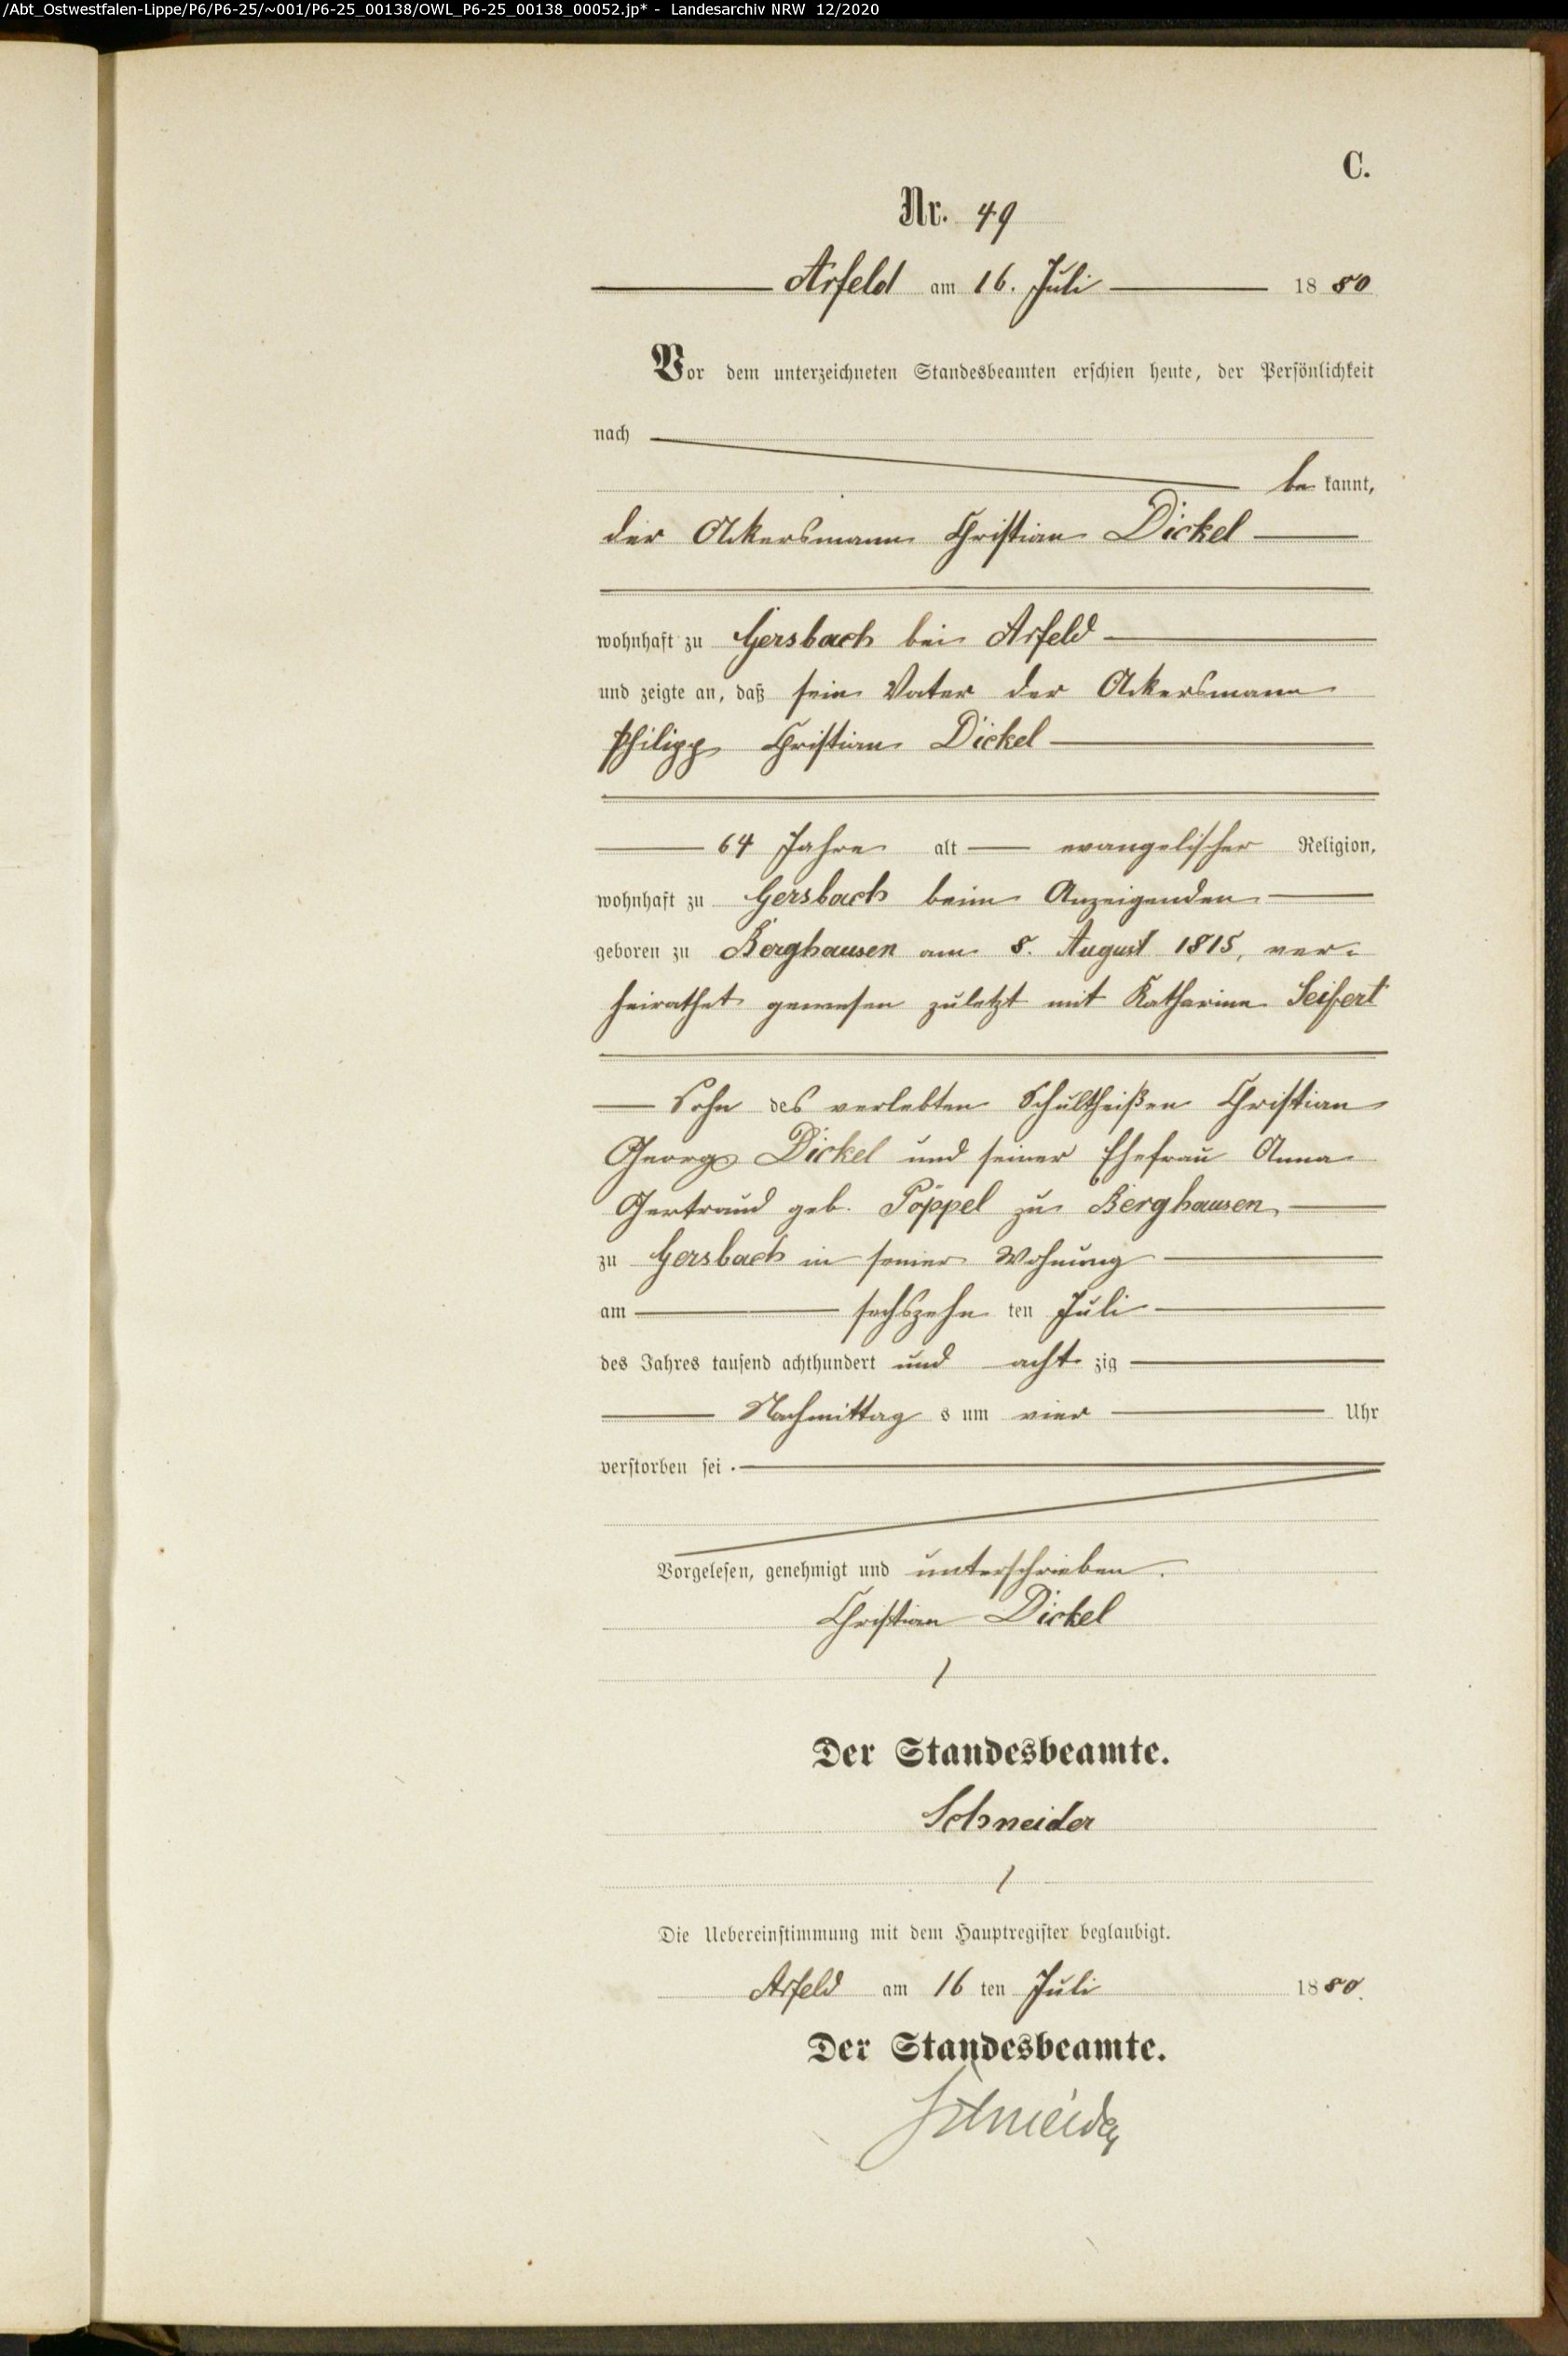 /Abt_Ostwestfalen-Lippe/P6/P6-25/~001/P6-25_00138/OWL_P6-25_00138_00052.jp* - Landesarchiv NRW 12/2020
C.
Nr. 49
Arfeld am 16. Juli 1880
Vor dem unterzeichneten Standesbeamten erschien heute, der Persönlichkeit
nach
be kannt,
der Ackersmann Christian Dickel
wohnhaft zu Gersbach bei Arfeld
und zeigte an, daß sein Vater der Ackersmann
Philipp Christian Dickel
64 Jahre alt evangelischer Religion,
wohnhaft zu Gersbach beim Anzeigenden
geboren zu Berghausen am 8. August 1815, ver-
heirathet gewesen zuletzt mit Katharine Seifert
Sohn des verlebten Schultheißen Christian
Georg Dickel und seiner Ehefrau Anna
Gertraud geb. Pöppel zu Berghausen,
zu Gersbach in seiner Wohnung
am sechszehn ten Juli
des Jahres tausend achthundert und acht zig
Nachmittag s um vier Uhr
verstorben sei.
Vorgelesen, genehmigt und unterschrieben.
Christian Dickel
Der Standesbeamte.
Schneider
Die Uebereinstimmung mit dem Hauptregister beglaubigt.
Arfeld am 16 ten Juli 1880.
Der Standesbeamte.
Schneider